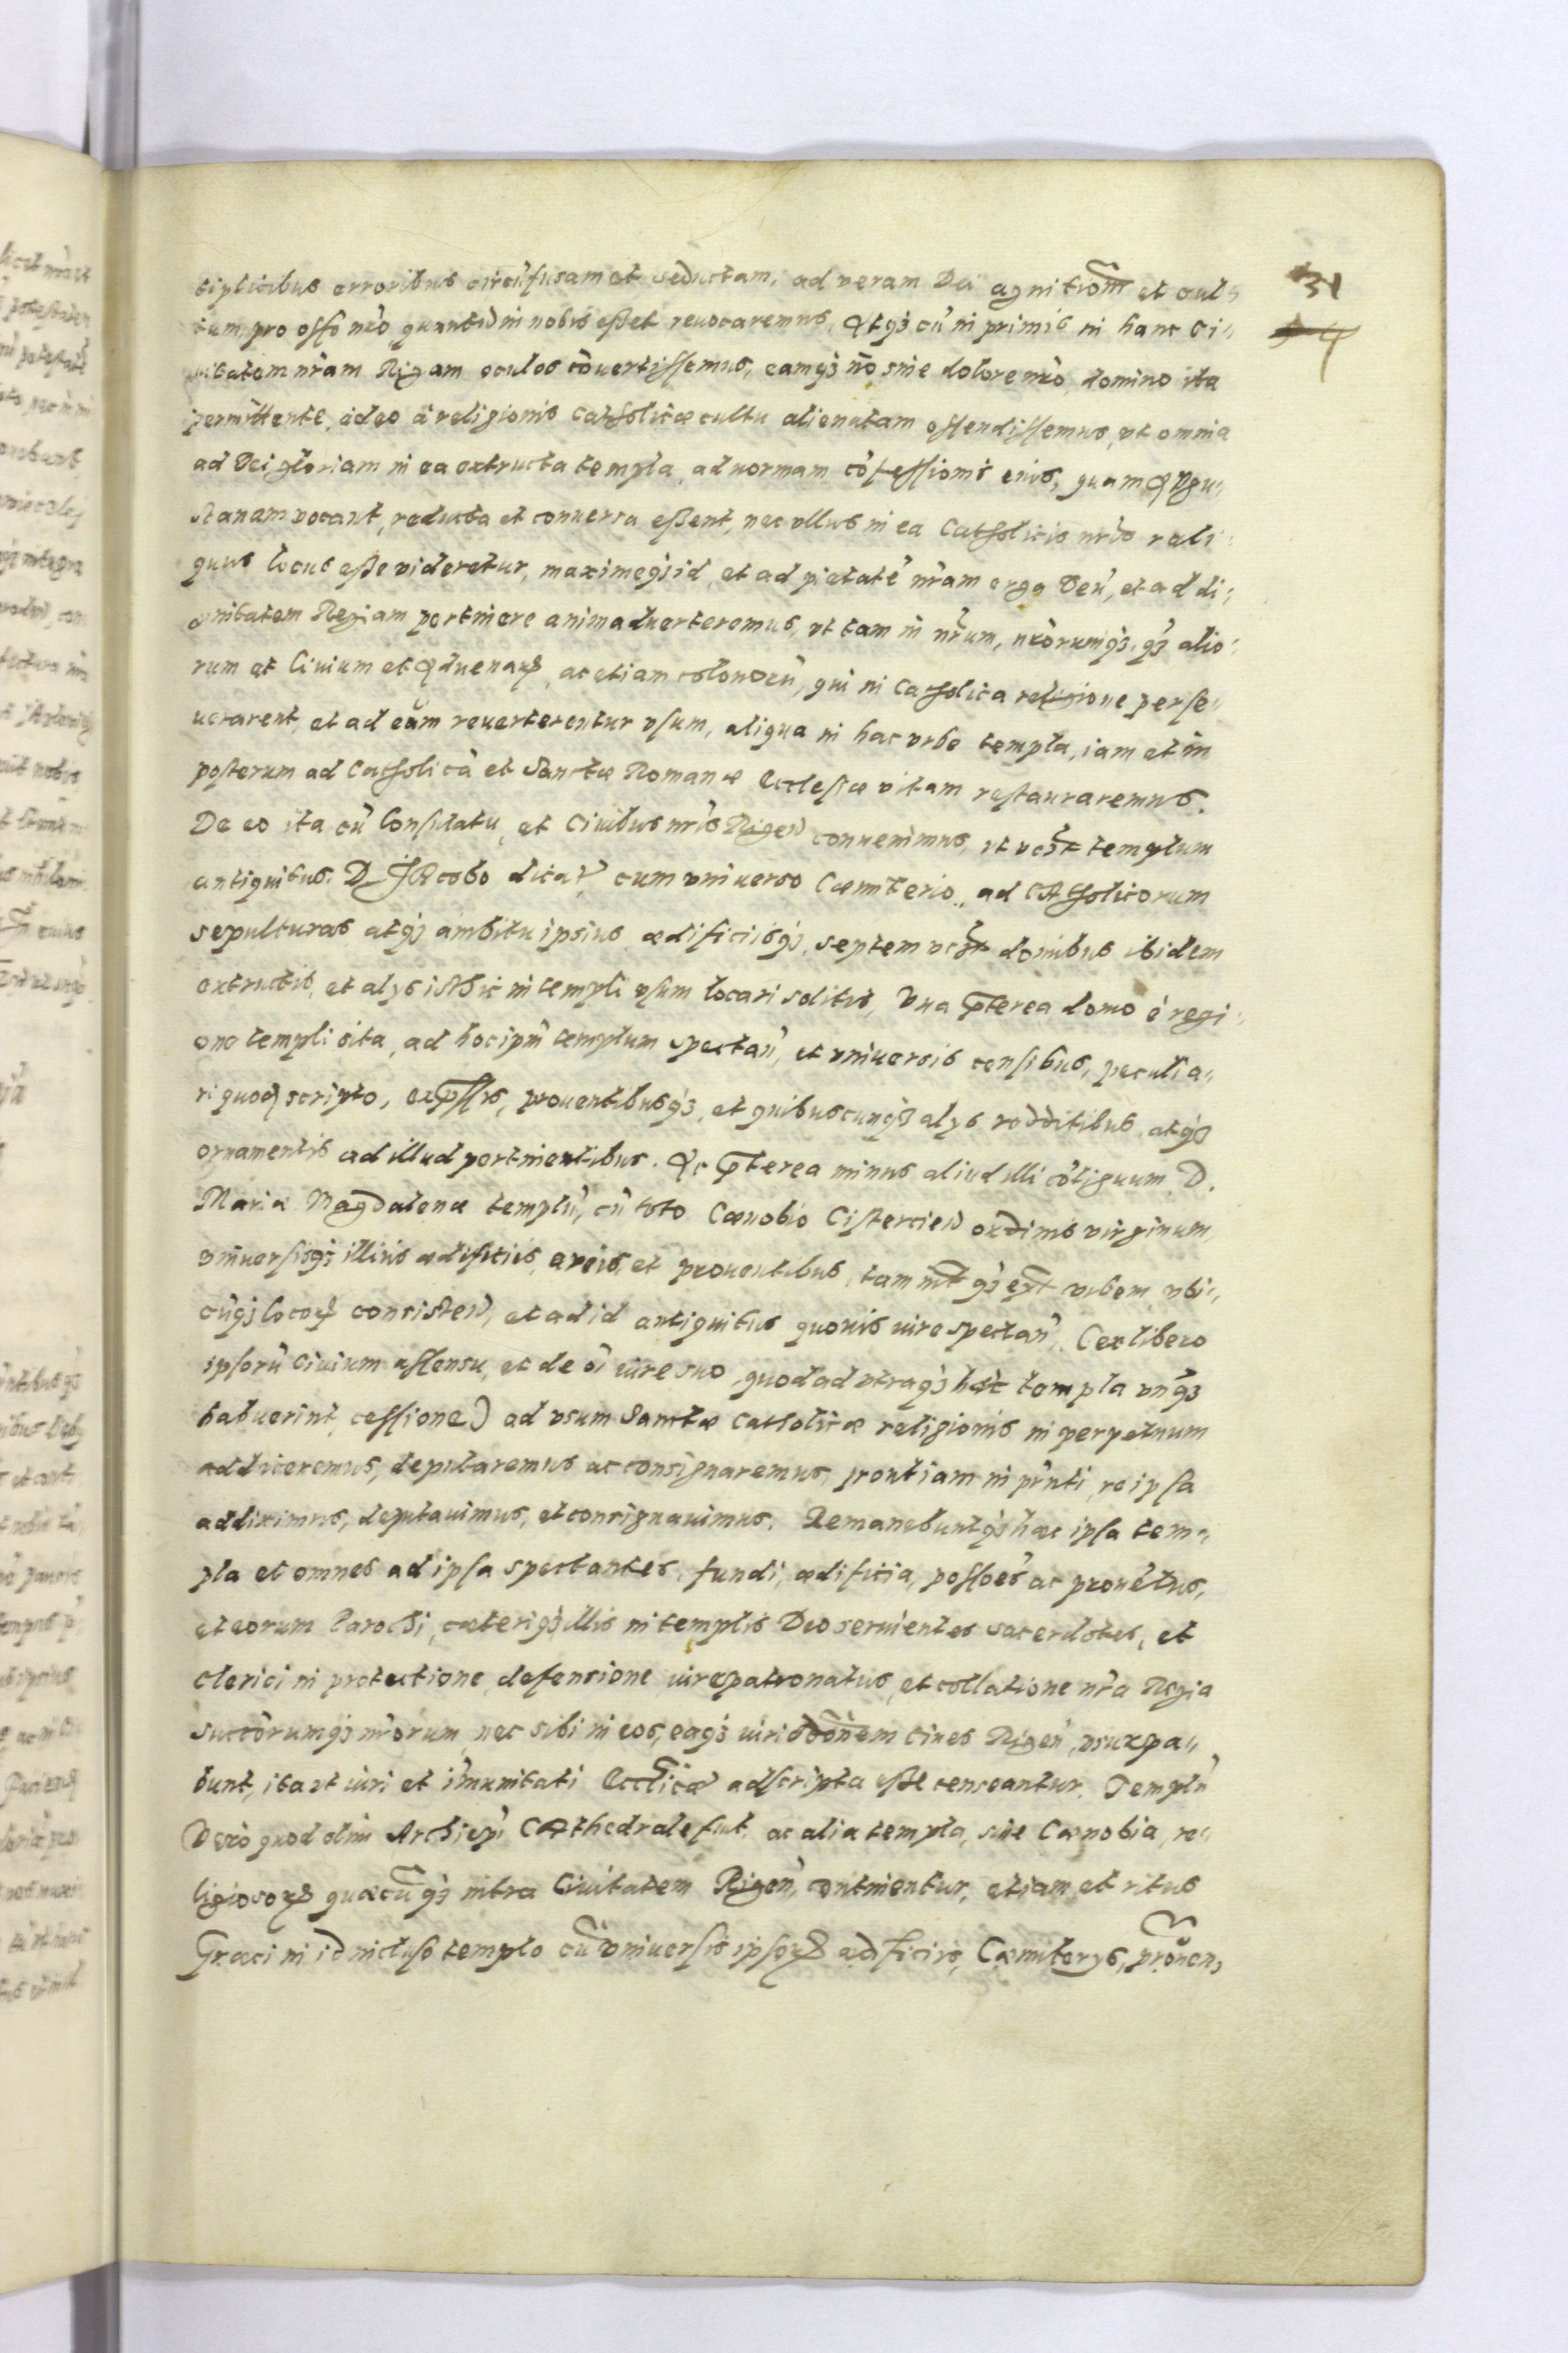 31
tiplicibus erroribus circu̅fusam et seductam, ad veram Dei agnitiom̅ et cul-
tum pro offo n̅ro, quantu̅ in nobis esset revocaremus. Atq3 cu̅ in primis in hanc Ci-
uitatem nr̅am Rigam oculos co̅uertissemus, eamq3 no̅ sine dolore nr̅o, domino ita
permittente, adeo à religionis Catholicæ cultu alienatam offendissemus, vt omnia
ad Dei gloriam in ea extructa templa, ad normam co̅fessionis eius, quam Augu-
stanam vocant, reducta et conuersa essent, nec vllus in ea Catholicis nr̅is reli-
quus locus esse videretur, maximeq3 id, et ad pietate̅ nr̅am erga Deu̅, et ad di-
gnitatem Regiam pertinere animaduerteremus, vt tam in nr̅um, nr̅orumq3, q3 alio-
rum et Ciuium et Aduenaꝝ, ac etiam colonoru̅, qui in Catholica religione perse-
uerarent, et ad eam reuerterentur vsum, aliqua in hac vrbe templa, iam et in
posterum ad Catholica̅ et Sanctæ Romanæ Ecclesiæ vitam restauraremus.
De eo ita cu̅ Consulatu, et Ciuibus nr̅is Rigen̅ conuenimus, vt templum
antiquitus D. Jacobo dicat̅ cum vniuerso Cœmiterio, ad Catholicorum
sepulturas atq3 ambitu ipsius ædificiisq3, septem domibus ibidem
extructis, et alys isthic in templi vsum locari solitis, Vna p̅terea domo è regi-
one templi sita, ad hoc ipm̅ templum spectan̅, et vniuersis censibus, peculia-
ri quoq3 scripto, exp̅ssis, prouentibusq3, et quibuscunq3 alys redditibus, atq3
ornamentis ad illud pertinentibus. Ac p̅terea minus aliud illi co̅tiguum, D.
Mariæ Magdalenæ templu̅, cu̅ toto Cœnobio Cistercien̅ ordinis virginum,
vniuersisq3 illius ædificiis, areis, et prouentibus, tam int̅ q3 ext̅ vrbem, vbi-
cu̅q3 locoꝝ consisten̅, et ad id antiquitus quouis iure spectan̅, (ex libero
ipsoru̅ Ciuium assensu, et de oi̅ iure suo, quod ad vtraq3 hæc templa vnq̅3
habuerint, cessione) ad vsum Sanctæ Catholicæ religionis in perpetuum
addiceremus, deputaremus ac consignaremus, prout iam in pr̅nti, reipsa
addiximus, deputauimus, et consignauimus. Remanebuntq3 hæc ipsa tem-
pla et omnes ad ipsa spectantes, fundi, ædificia, possoe̅s ac proue̅tus,
et eorum Parochi, cæteriq3 illis in templis Deo seruientes sacerdotes, et
clerici in protectione, defensione iure patronatus, et collatione nr̅a Regia
succorumq3 nr̅orum, nec sibi in eos, eaq3 iurisdonem Ciues Rigen̅, vsurpa-
bunt, ita vt iuri et i̅munitati Eccl̅icæ adscripta esse censeantur. Templu̅
Vero quod olim Archiepi̅ Cathedrale fuit, ac alia templa, siue Cænobia, re-
ligiosoꝝ quæcu̅q3 intra Ciuitatem Rigen̅, continentur, etiam et ritus
Græci in id incluso templo cu̅ vniuersis ipsoꝝ ædificiis, Cæmiterys, prouen-